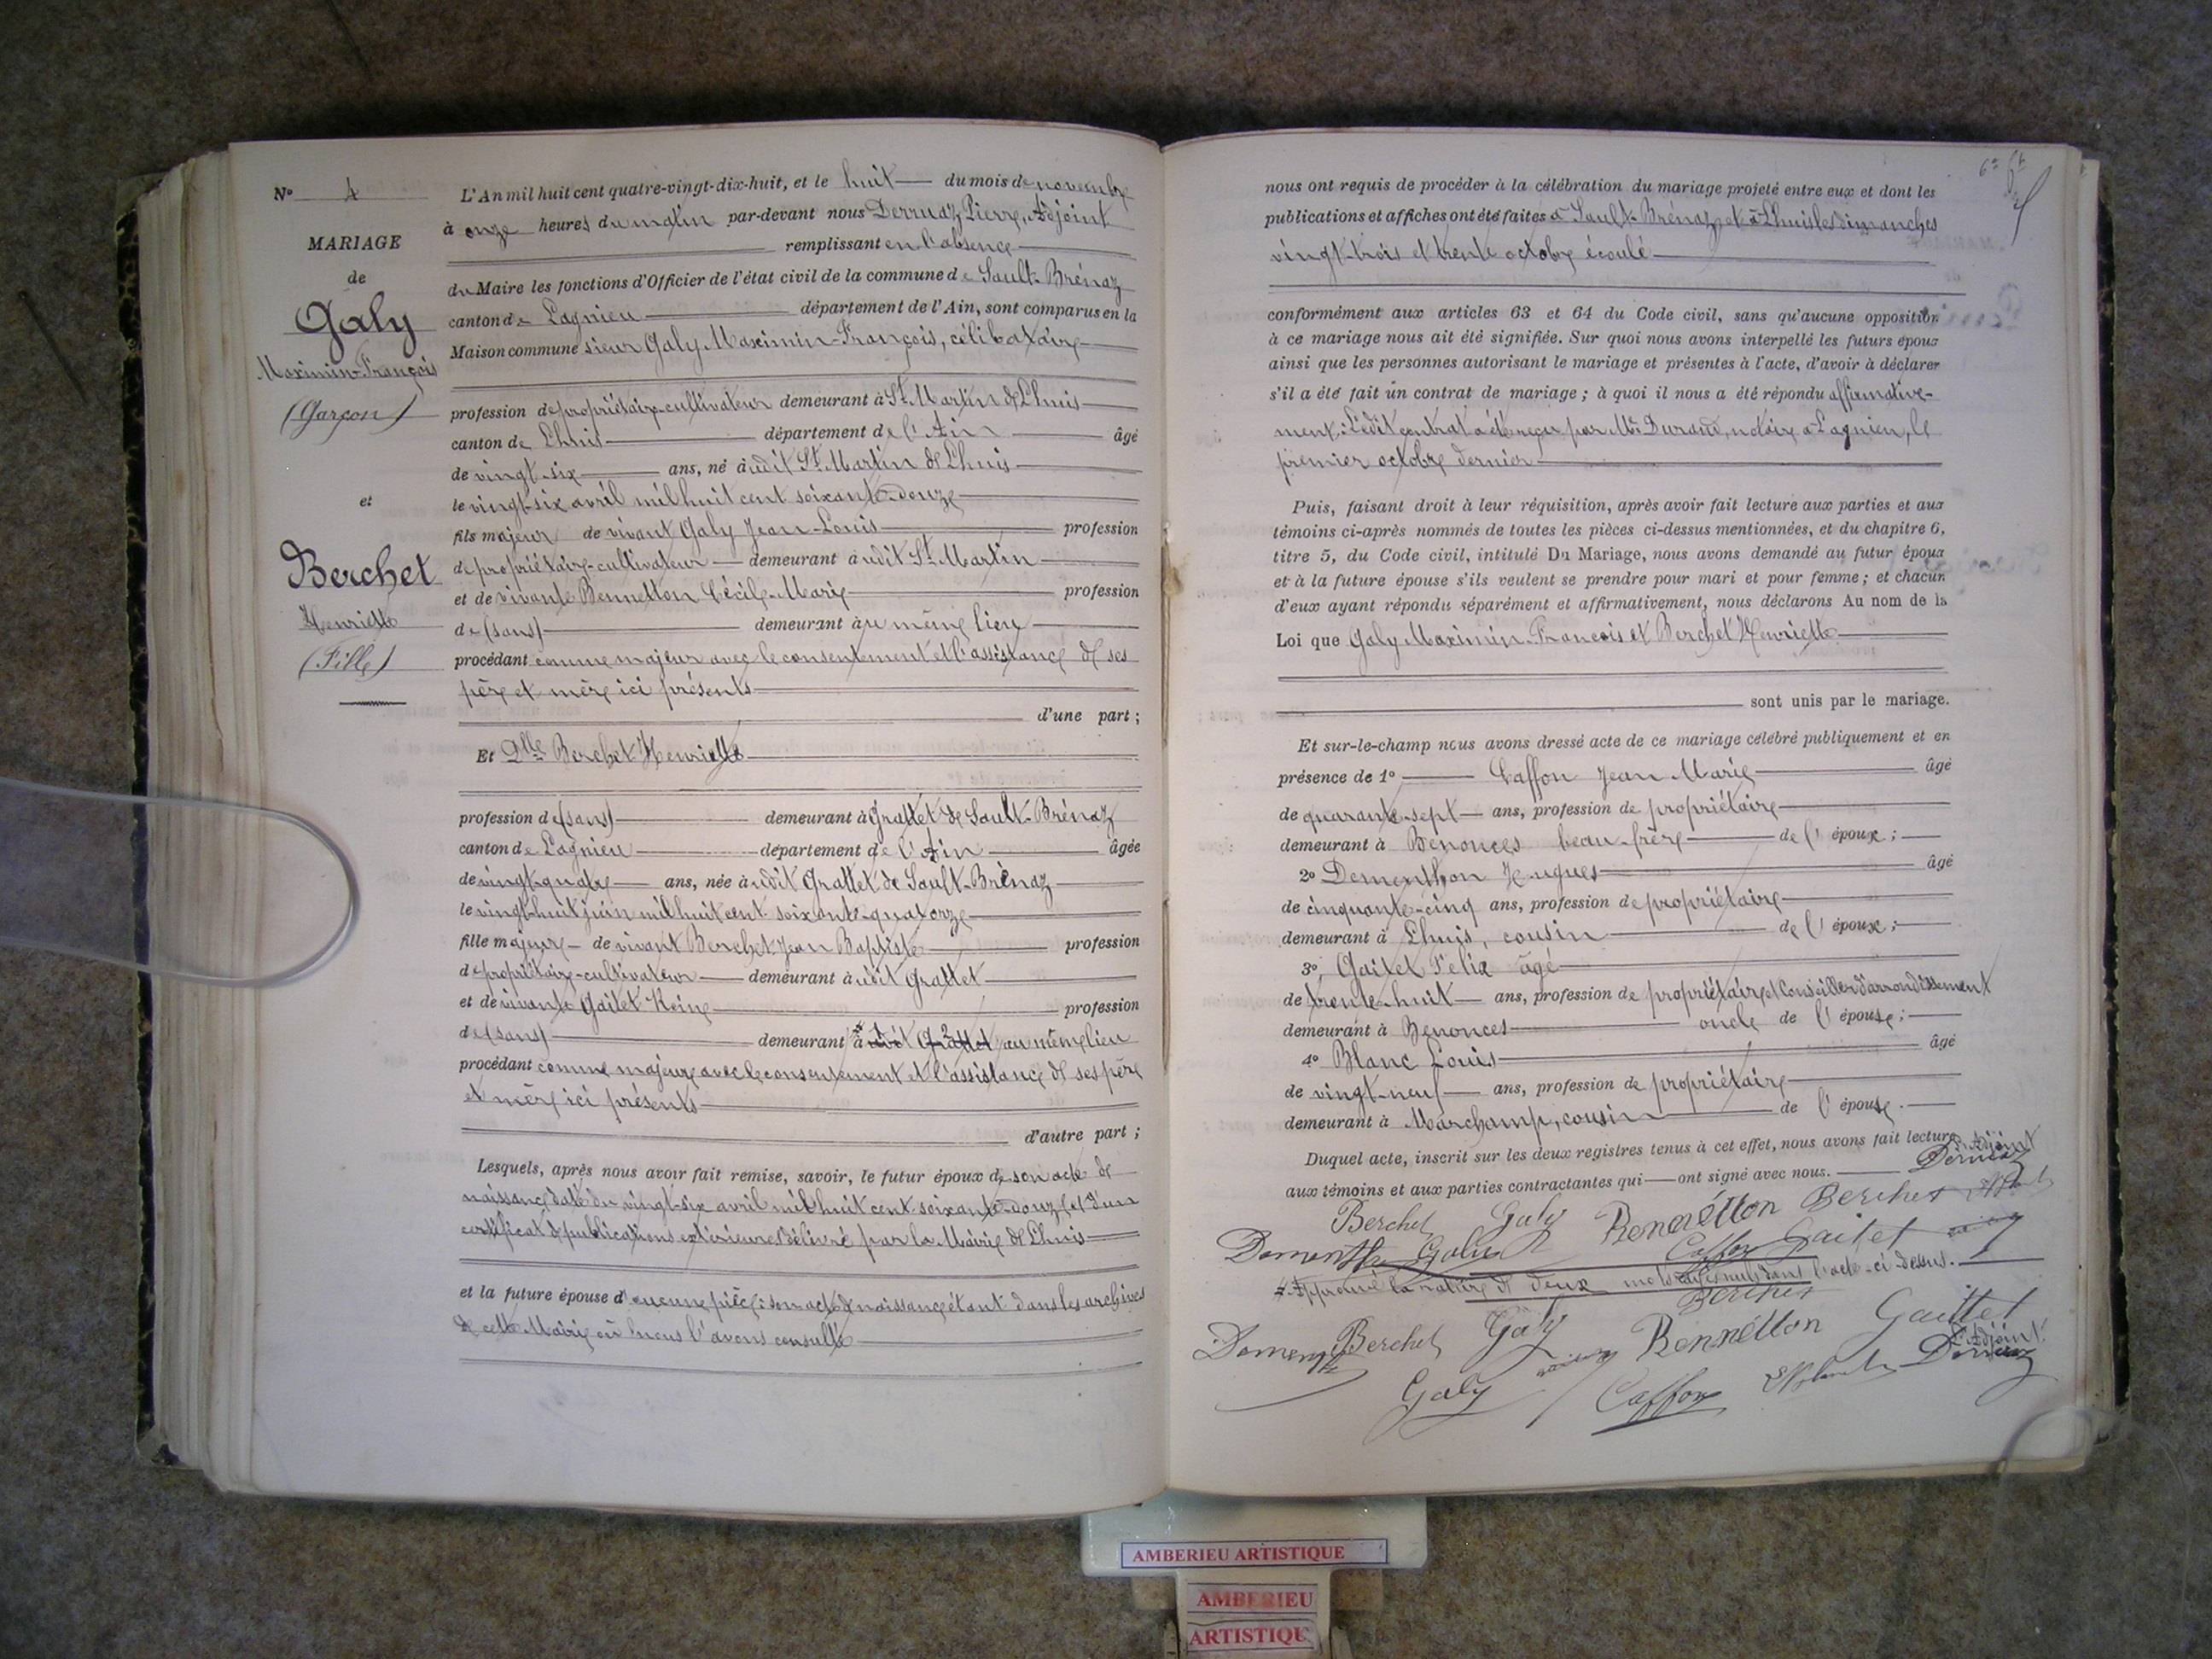 N° 4
MARIAGE
de
Galy
Maximin-François
(Garçon)
et
Berchet
Henriette
(Fille)
L'An mil huit cent quatre-vingt-dix-huit, et le huit du mois de novembre
à onze heures du matin par-devant nous Derruaz Pierre, Adjoint
remplissant en l'absence
du Maire les fonctions d'Officier de l'état civil de la commune de Sault-Brénaz
canton de Lagnieu département de l'Ain, sont comparus en la
Maison commune sieur Galy Maximin-François, célibataire
profession de propriétaire-cultivateur demeurant à St Martin de Lhuis
canton de Lhuis département de l'Ain âgé
de vingt-six ans, né à udit St Martin de Lhuis
le vingt-six avril mil huit cent soixante-douze
fils majeur de vivant Galy Jean-Louis profession
de propriétaire-cultivateur demeurant à udit St Martin
et de vivante Bennetton Cécile-Marie profession
de (sans) demeurant à u même lieu
procédant comme majeur avec le consentement et l'assistance de ses
père et mère ici présents
d'une part ;
Et Dlle Berchet Henriette
profession de (sans) demeurant à Grattet de Sault-Brénaz
canton de Lagnieu département de l'Ain âgée
de vingt-quatre ans, née à udit Grattet de Sault-Brénaz
le vingt-huit juin mil huit cent soixante-quatorze
fille majeure de vivant Berchet Jean Baptiste profession
de propriétaire-cultivateur demeurant à udit Grattet
et de vivante Gaitet Reine profession
de (sans) demeurant à udit Grattet au même lieu
procédant comme majeure avec le consentement et l'assistance de ses père
et mère ici présents
d'autre part ;
Lesquels, après nous avoir fait remise, savoir, le futur époux de son acte de
naissance daté du vingt-six avril mil huit cent soixante-douze et d'un
certificat de publications extérieures délivré par la Mairie de Lhuis
et la future épouse d'aucune pièce : son acte de naissance étant dans les archives
de cette Mairie où nous l'avons consulté
nous ont requis de procéder à la célébration du mariage projeté entre eux et dont les
publications et affiches ont été faites à Sault-Brénaz et à Lhuis les dimanches
vingt-trois et trente octobre écoulé
conformément aux articles 63 et 64 du Code civil, sans qu'aucune opposition
à ce mariage nous ait été signifiée. Sur quoi nous avons interpellé les futurs époux
ainsi que les personnes autorisant le mariage et présentes à l'acte, d'avoir à déclarer
s'il a été fait un contrat de mariage ; à quoi il nous a été répondu affirmative-
ment : Ledit contrat a été reçu par Me Durand, notaire à Lagnieu, le
premier octobre dernier
Puis, faisant droit à leur réquisition, après avoir fait lecture aux parties et aux
témoins ci-après nommés de toutes les pièces ci-dessus mentionnées, et du chapitre 6,
titre 5, du Code civil, intitulé Du Mariage, nous avons demandé au futur époux
et à la future épouse s'ils veulent se prendre pour mari et pour femme ; et chacun
d'eux ayant répondu séparément et affirmativement, nous déclarons Au nom de la
Loi que Galy Maximin-François et Berchet Henriette
sont unis par le mariage.
Et sur-le-champ nous avons dressé acte de ce mariage célébré publiquement et en
présence de 1° Caffon Jean Marie âgé
de quarante-sept ans, profession de propriétaire
demeurant à Benonces beau-frère de l'époux ;
2° Dementhon Hugues âgé
de cinquante-cinq ans, profession de propriétaire
demeurant à Lhuis, cousin de l'époux ;
3° Gaitet Félix âgé
de trente-huit ans, profession de propriétaire et Conseiller d'arrondissement
demeurant à Benonces oncle de l'épouse ;
4° Blanc Louis âgé
de vingt-neuf ans, profession de propriétaire
demeurant à Marchamp, cousin de l'épouse.
Duquel acte, inscrit sur les deux registres tenus à cet effet, nous avons fait lecture
aux témoins et aux parties contractantes qui ont signé avec nous.
L'Adjoint
Derruaz
Berchet Galy Bennétton Berchet
Dementhon Galy Caffon Gaitet
Approuvé la rature de deux mots rayés nuls dans l'acte ci-dessus.
Berchet
Berchet Galy Bennétton Gaittet
L'Adjoint
Derruaz
Galy Caffon
AMBERIEU ARTISTIQUE
AMBERIEU
ARTISTIQUE